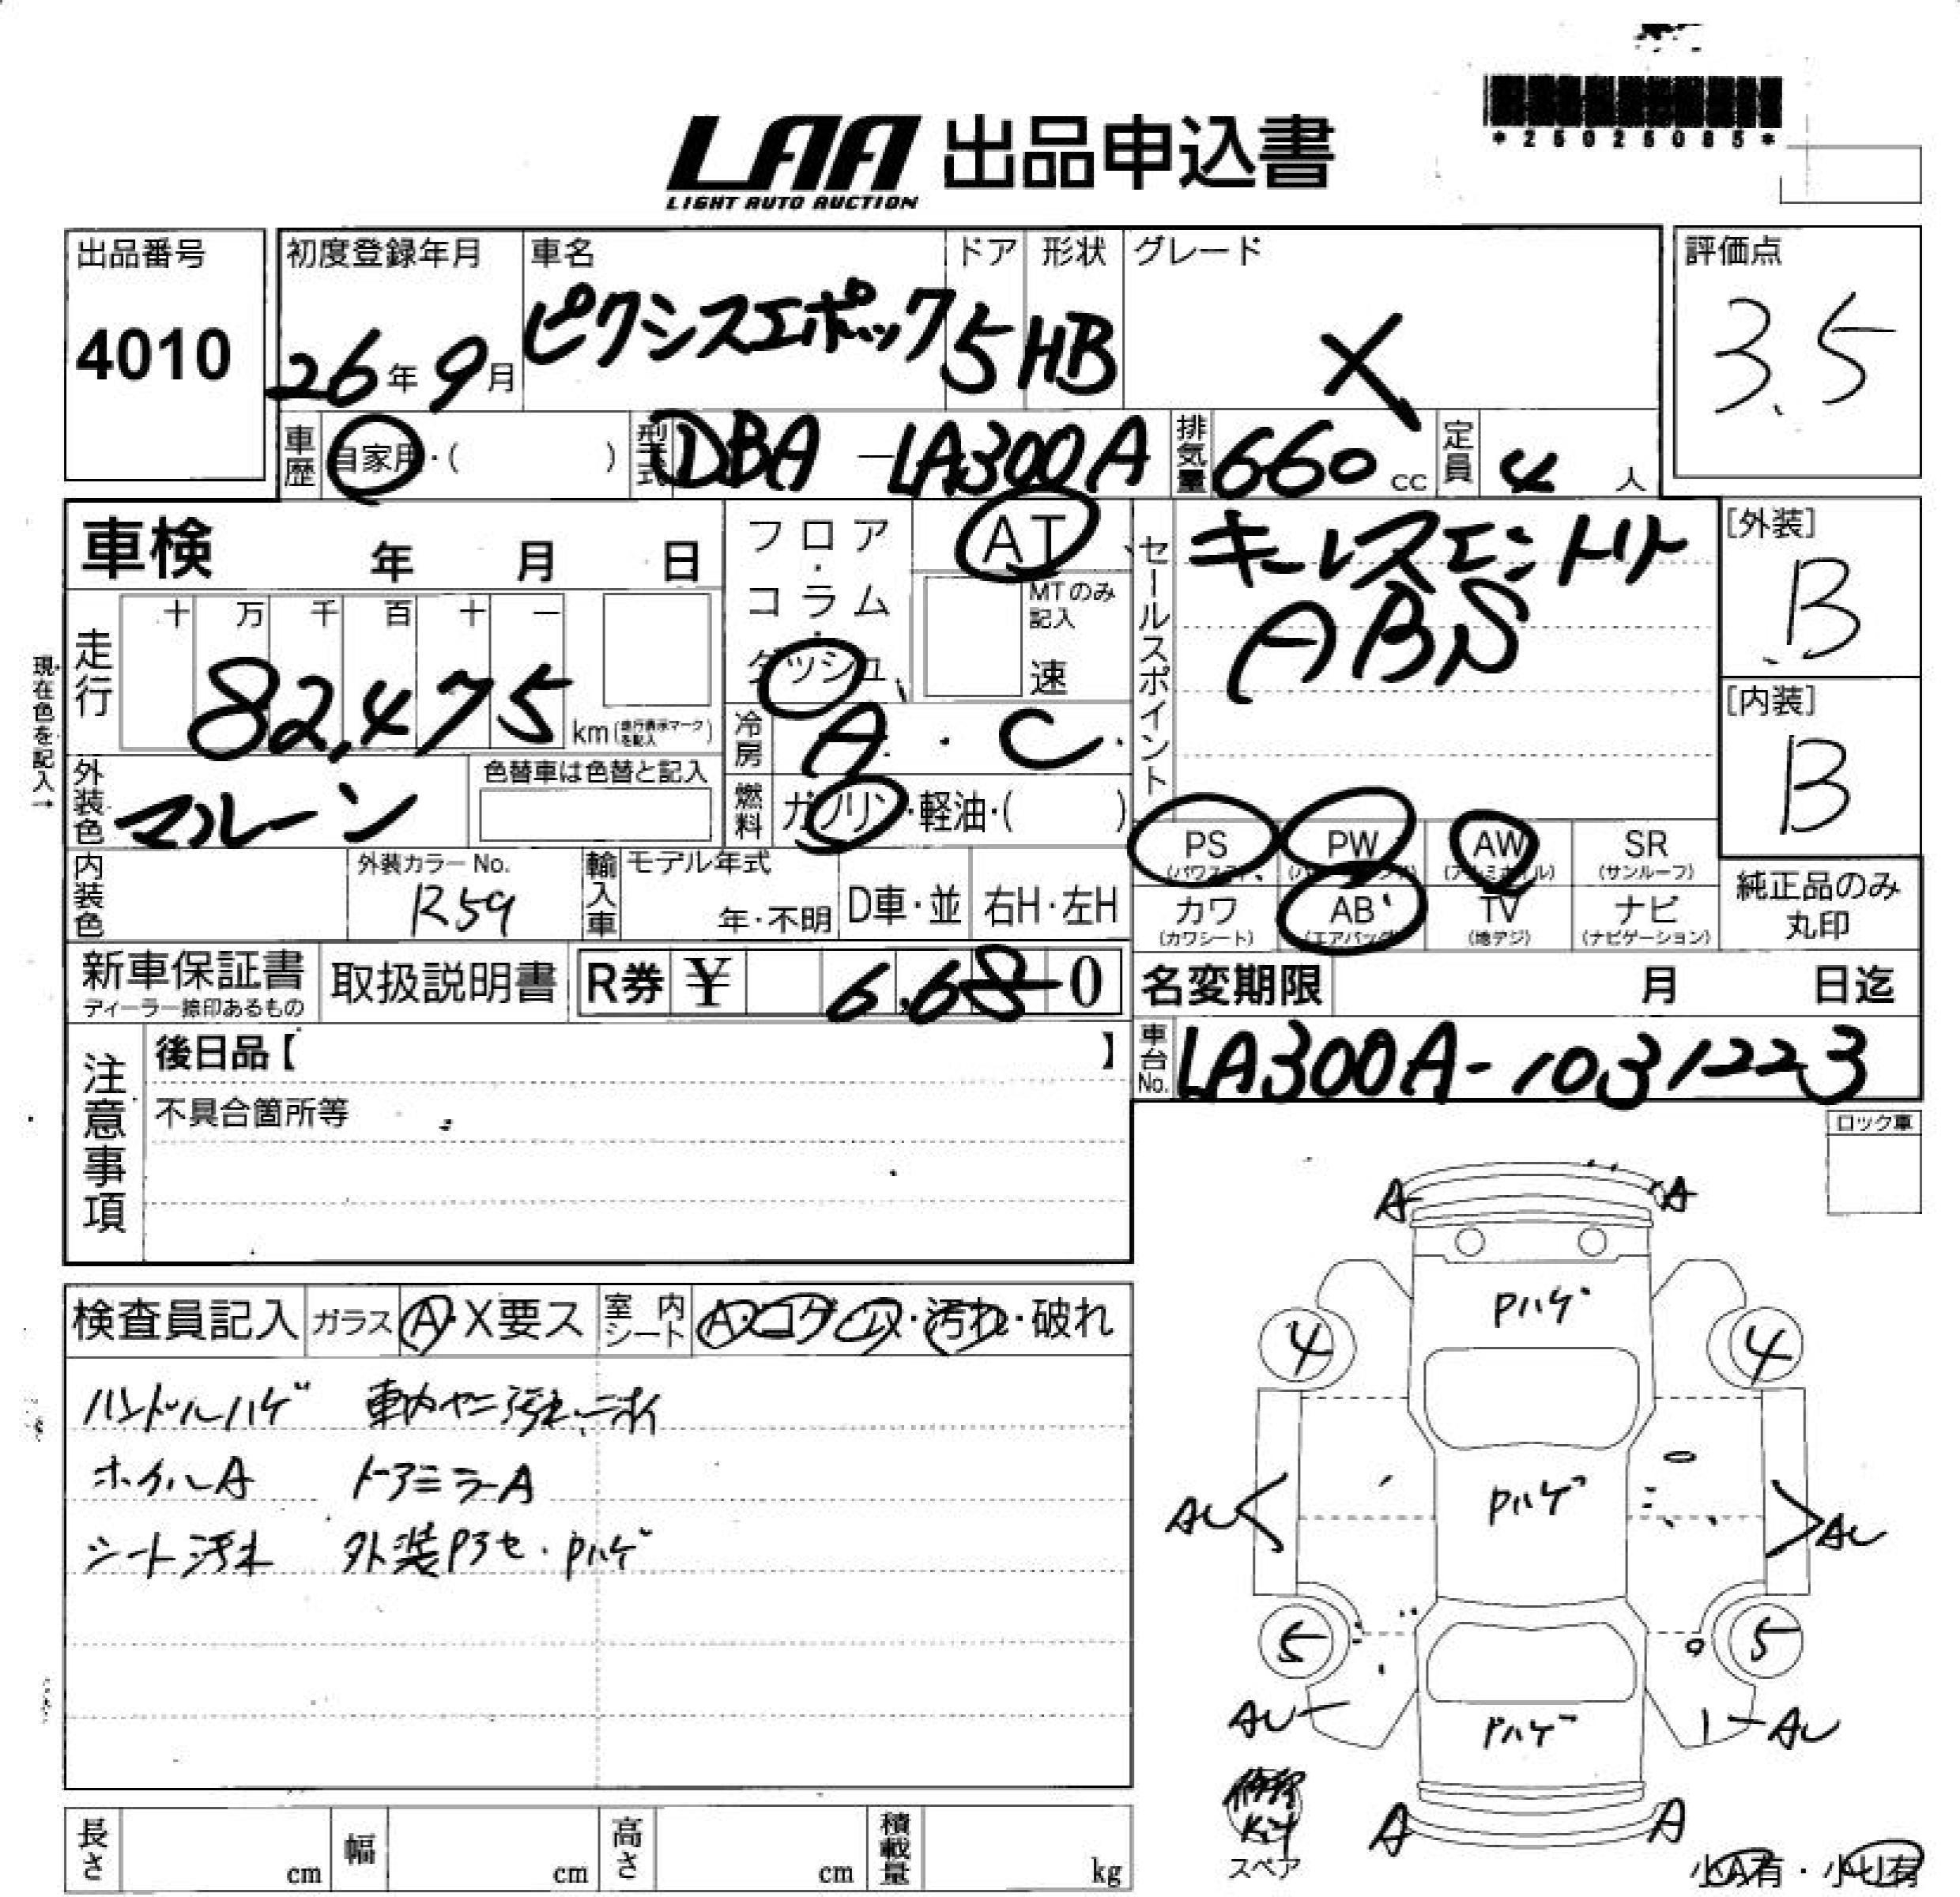 *25025085*
LAA 出品申込書
LIGHT AUTO AUCTION
出品番号
4010
初度登録年月
26年9月
車名
ピクシスエポック
ドア
5
形状
HB
グレード
X
評価点
3.5
車歴
自家用・( )
型式
DBA-LA300A
排気量
660 cc
定員
4 人
車検 年 月 日
フロア・コラム・ダッシュ
AT
MTのみ記入
速
セールスポイント
キーレスエントリー
ABS
[外装]
B
[内装]
B
現在色を記入→
走行
十 万 千 百 十 一
82,475
km(走行表示マークを記入)
冷房
A・C
外装色
マルーン
色替車は色替と記入
燃料
ガソリン・軽油・( )
PS
(パワステ)
PW
AW
(アルミホイル)
SR
(サンルーフ)
カワ
(カワシート)
AB
(エアバッグ)
TV
(地デジ)
ナビ
(ナビゲーション)
純正品のみ
丸印
内装色
外装カラーNo.
R59
輸入車
モデル年式
年・不明
D車・並
右H・左H
新車保証書
ディーラー捺印あるもの
取扱説明書
R券 ¥ 6,680
名変期限 月 日迄
車台No.
LA300A-1031223
注意事項
後日品【 】
不具合箇所等
ロック車
検査員記入
ガラス
A・X要ス
室内シート
A・コゲ・穴・汚れ・破れ
ハンドルハゲ 車内ヤニ汚れ・ニオイ
ホイルA ドアミラーA
シート汚れ 外装Pアセ・Pハゲ
A A
Pハゲ
4 4
Pハゲ
AU AU
5 5
AU AU
Pハゲ
A A
修理
Kit
スペア
小A有・小U有
長さ cm
幅 cm
高さ cm
積載量 kg